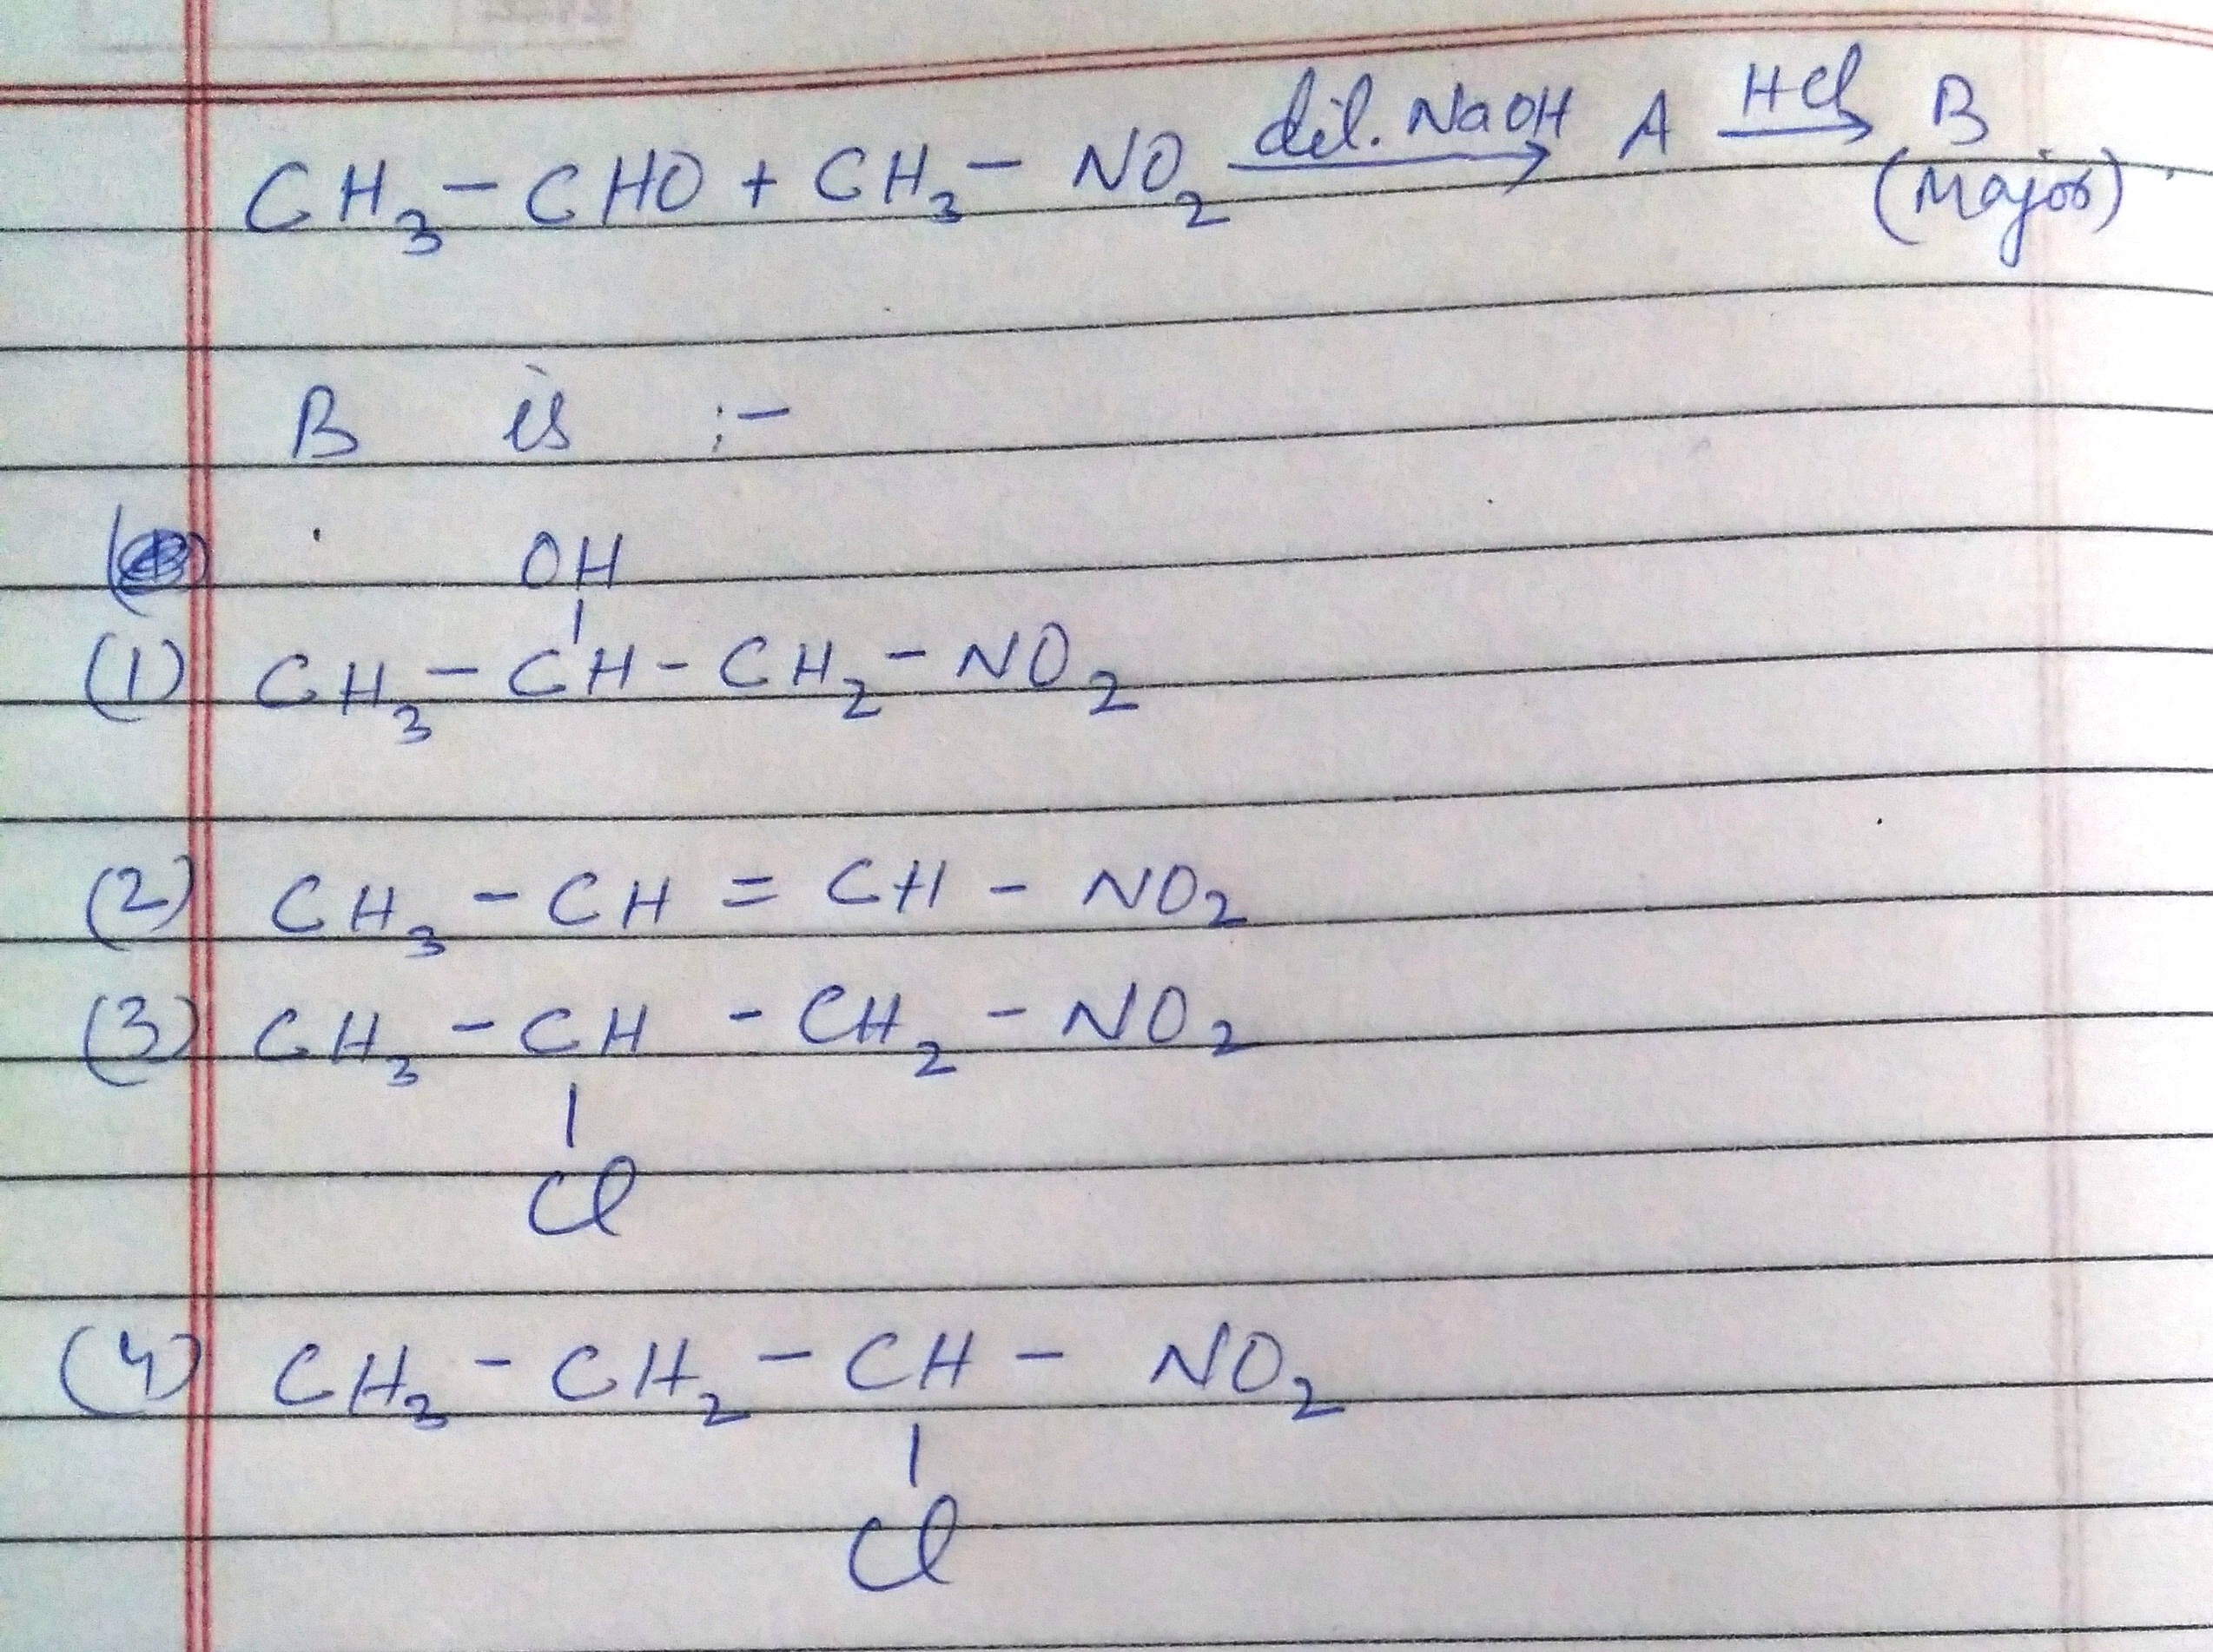 CH₃ - CHO + CH₃ - NO₂ dil. NaOH → A HCl → B
(Major)
B is :-
OH
(1) CH₃ - CH - CH₂ - NO₂
(2) CH₃ - CH = CH - NO₂
(3) CH₃ - CH - CH₂ - NO₂
Cl
(4) CH₃ - CH₂ - CH - NO₂
Cl